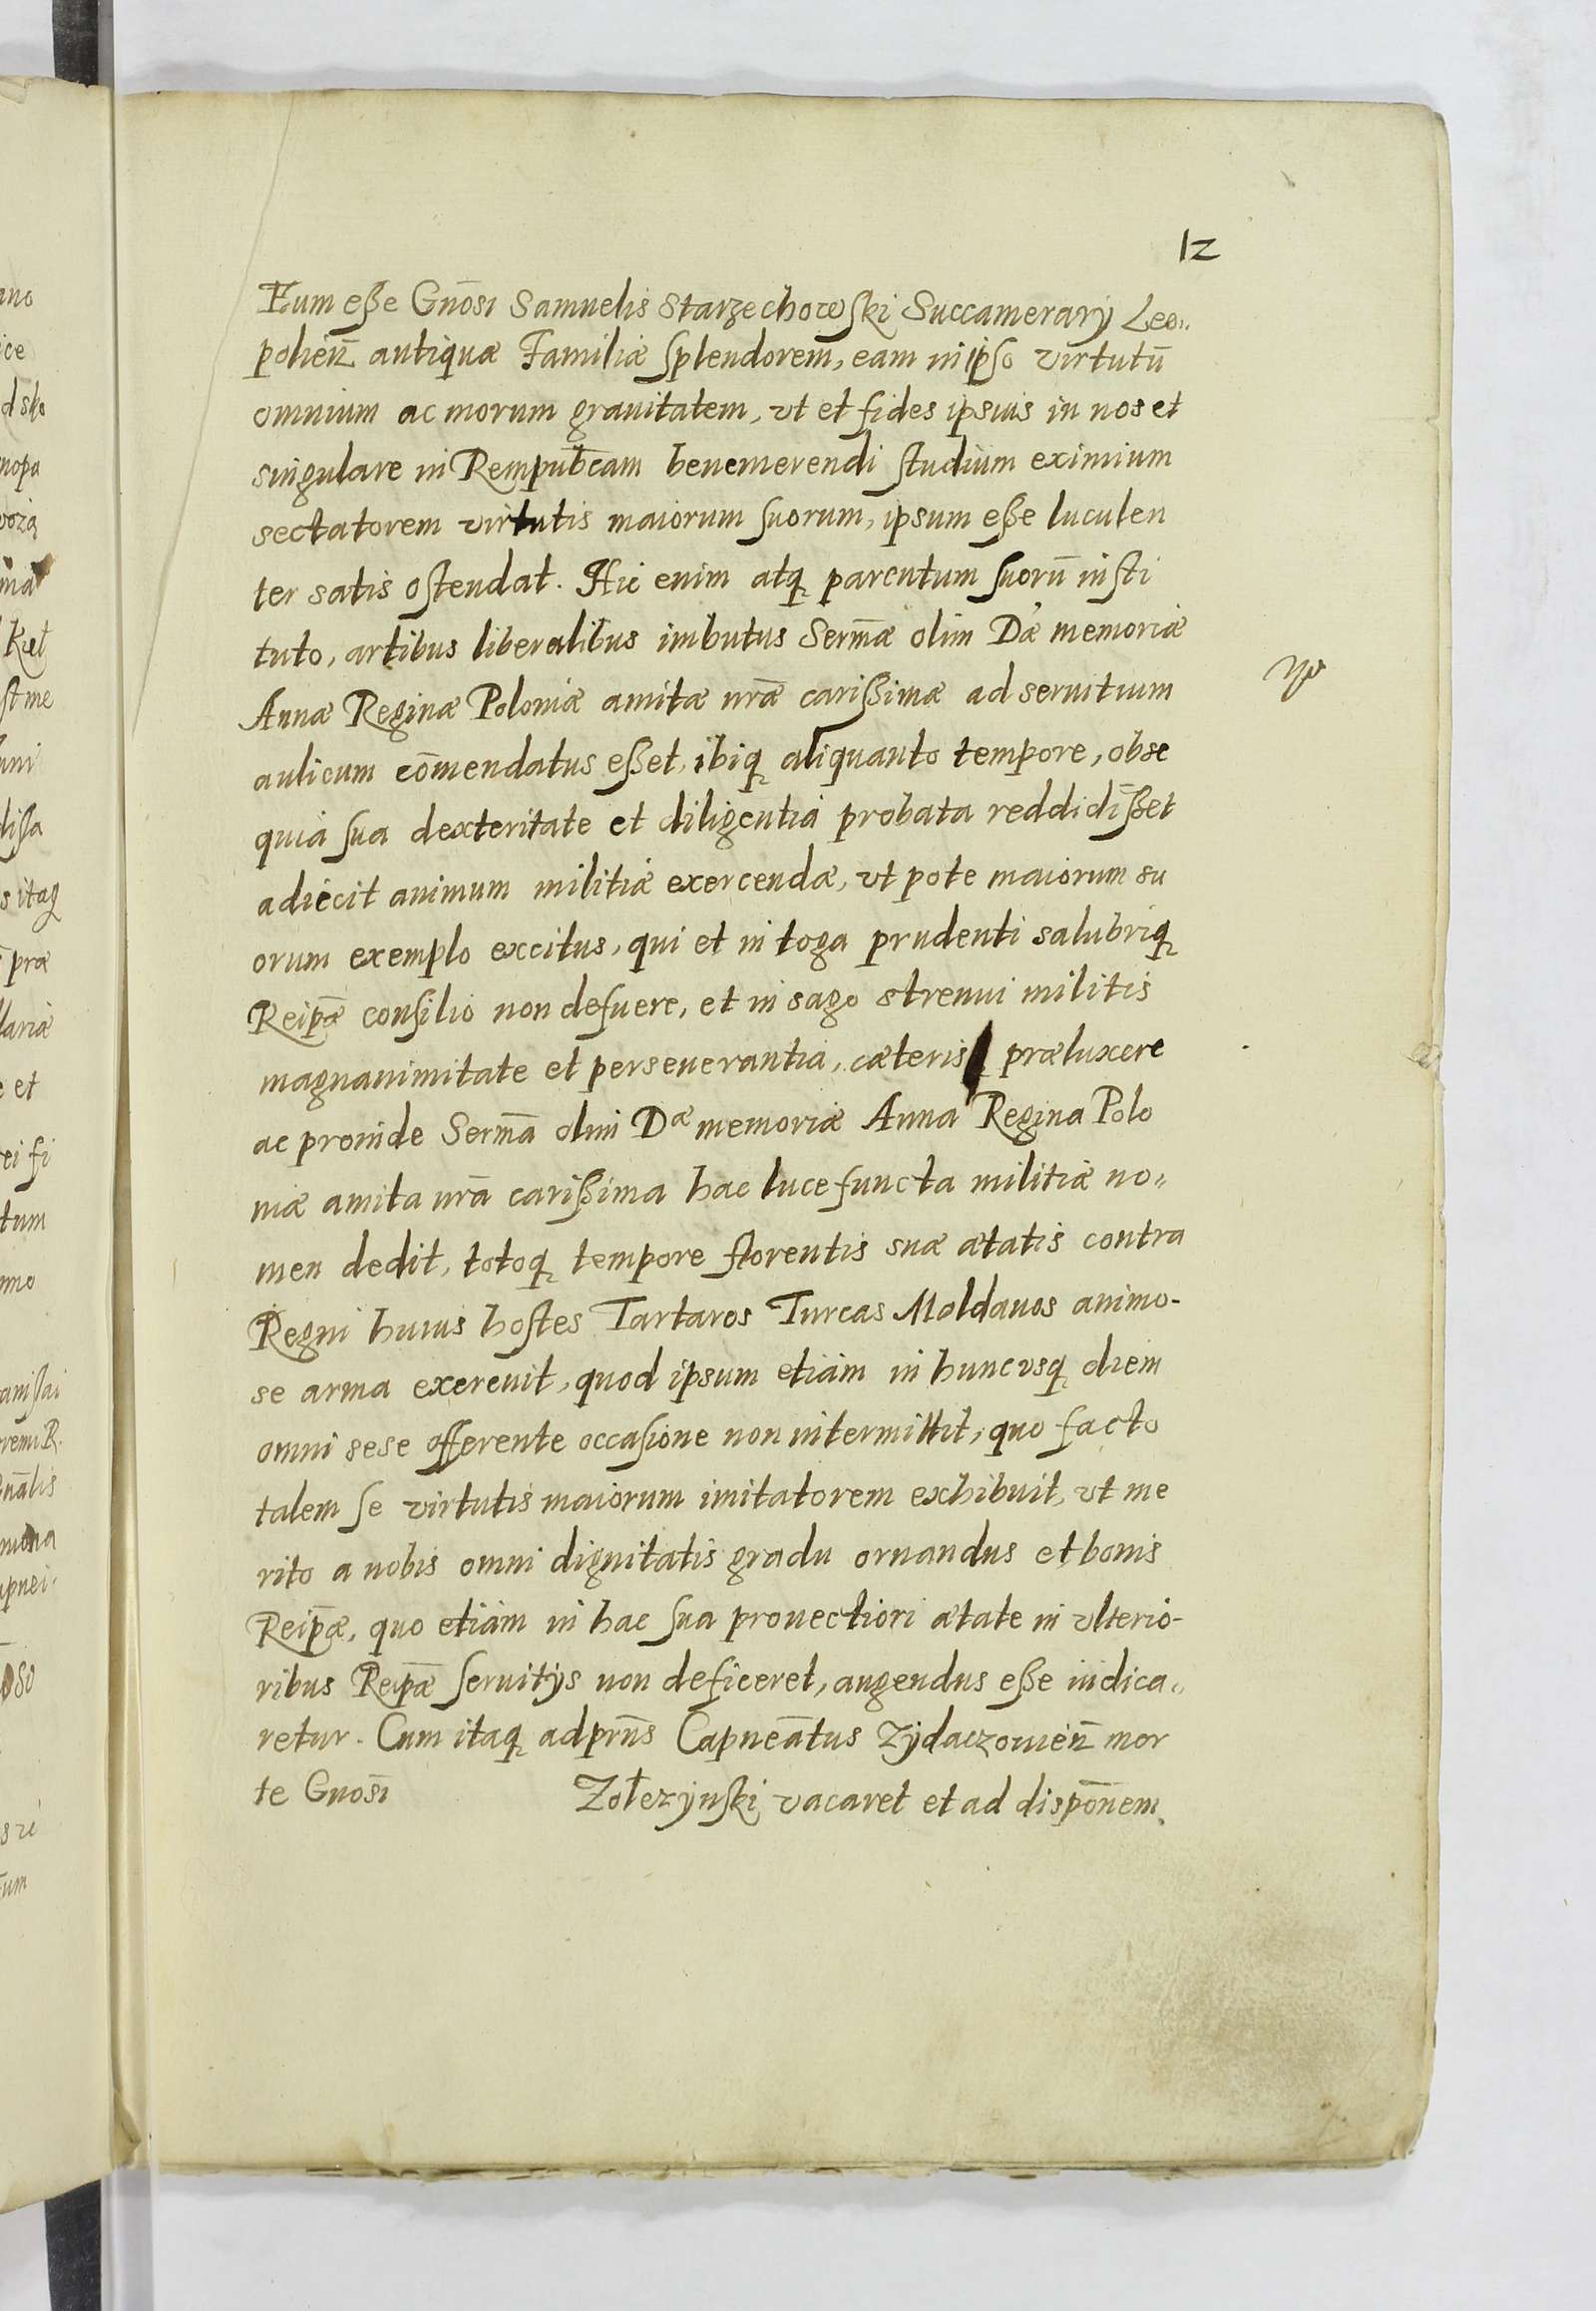 12
Eum eße Gnosi Samuelis Starzechowſki Succamerarÿ Leo„
polien̄ antiquæ Familiæ ſplendorem, eam in ipſo virtutū
omnium ac morum grauitatem, vt et fides ipsius in nos et
singulare in Rempub̄cam benemerendi ſtudium eximium
sectatorem virtutis maiorum ſuorum, ipsum eße luculen
ter satis oſtendat. Hic enim atq̨ parentum ſuorū inſti
tuto, artibus liberalibus imbutus Serm̄æ olim Dæ memoriæ
Annæ Reginæ Poloniæ amitæ nrǣ carißimæ ad seruitium
aulicum com̄endatus eßet, ibiq̨ aliquanto tempore, obse
quia ſua dexteritate et diligentia probata reddidißet
adiecit animum militiæ exercendæ, vt pote maiorum su
orum exemplo excitus, qui et in toga prudenti salubriq̨
Reip̄æ conſilio non defuere, et in sago strenui militis
magnanimitate et perseuerantia, cæteris præluxere
ac proinde Serm̄a olim Dæ memoriæ Anna Regina Polo
niæ amita nrā carißima hac luce functa militiæ no„
men dedit, totoq̨ tempore florentis suæ ætatis contra
Regni huius hoſtes Tartaros Turcas Moldauos animo-
se arma exereuit, quod ipsum etiam in hunc vsq̨ diem
omni sese offerente occaſione non intermittit, quo facto
talem ſe virtutis maiorum imitatorem exhibuit, vt me
rito a nobis omni dignitatis gradu ornandus et bonis
Reip̄æ, quo etiam in hac ſua prouectiori ætate in vlterio-
ribus Reip̄æ ſeruitÿs non deficeret, augendus eße iudica„
retur. Cum itaq̨ ad prn̄s Capneātus Zÿdaczouien̄ mor
te Gnosi Zołczÿnſki vacaret et ad dispōnem